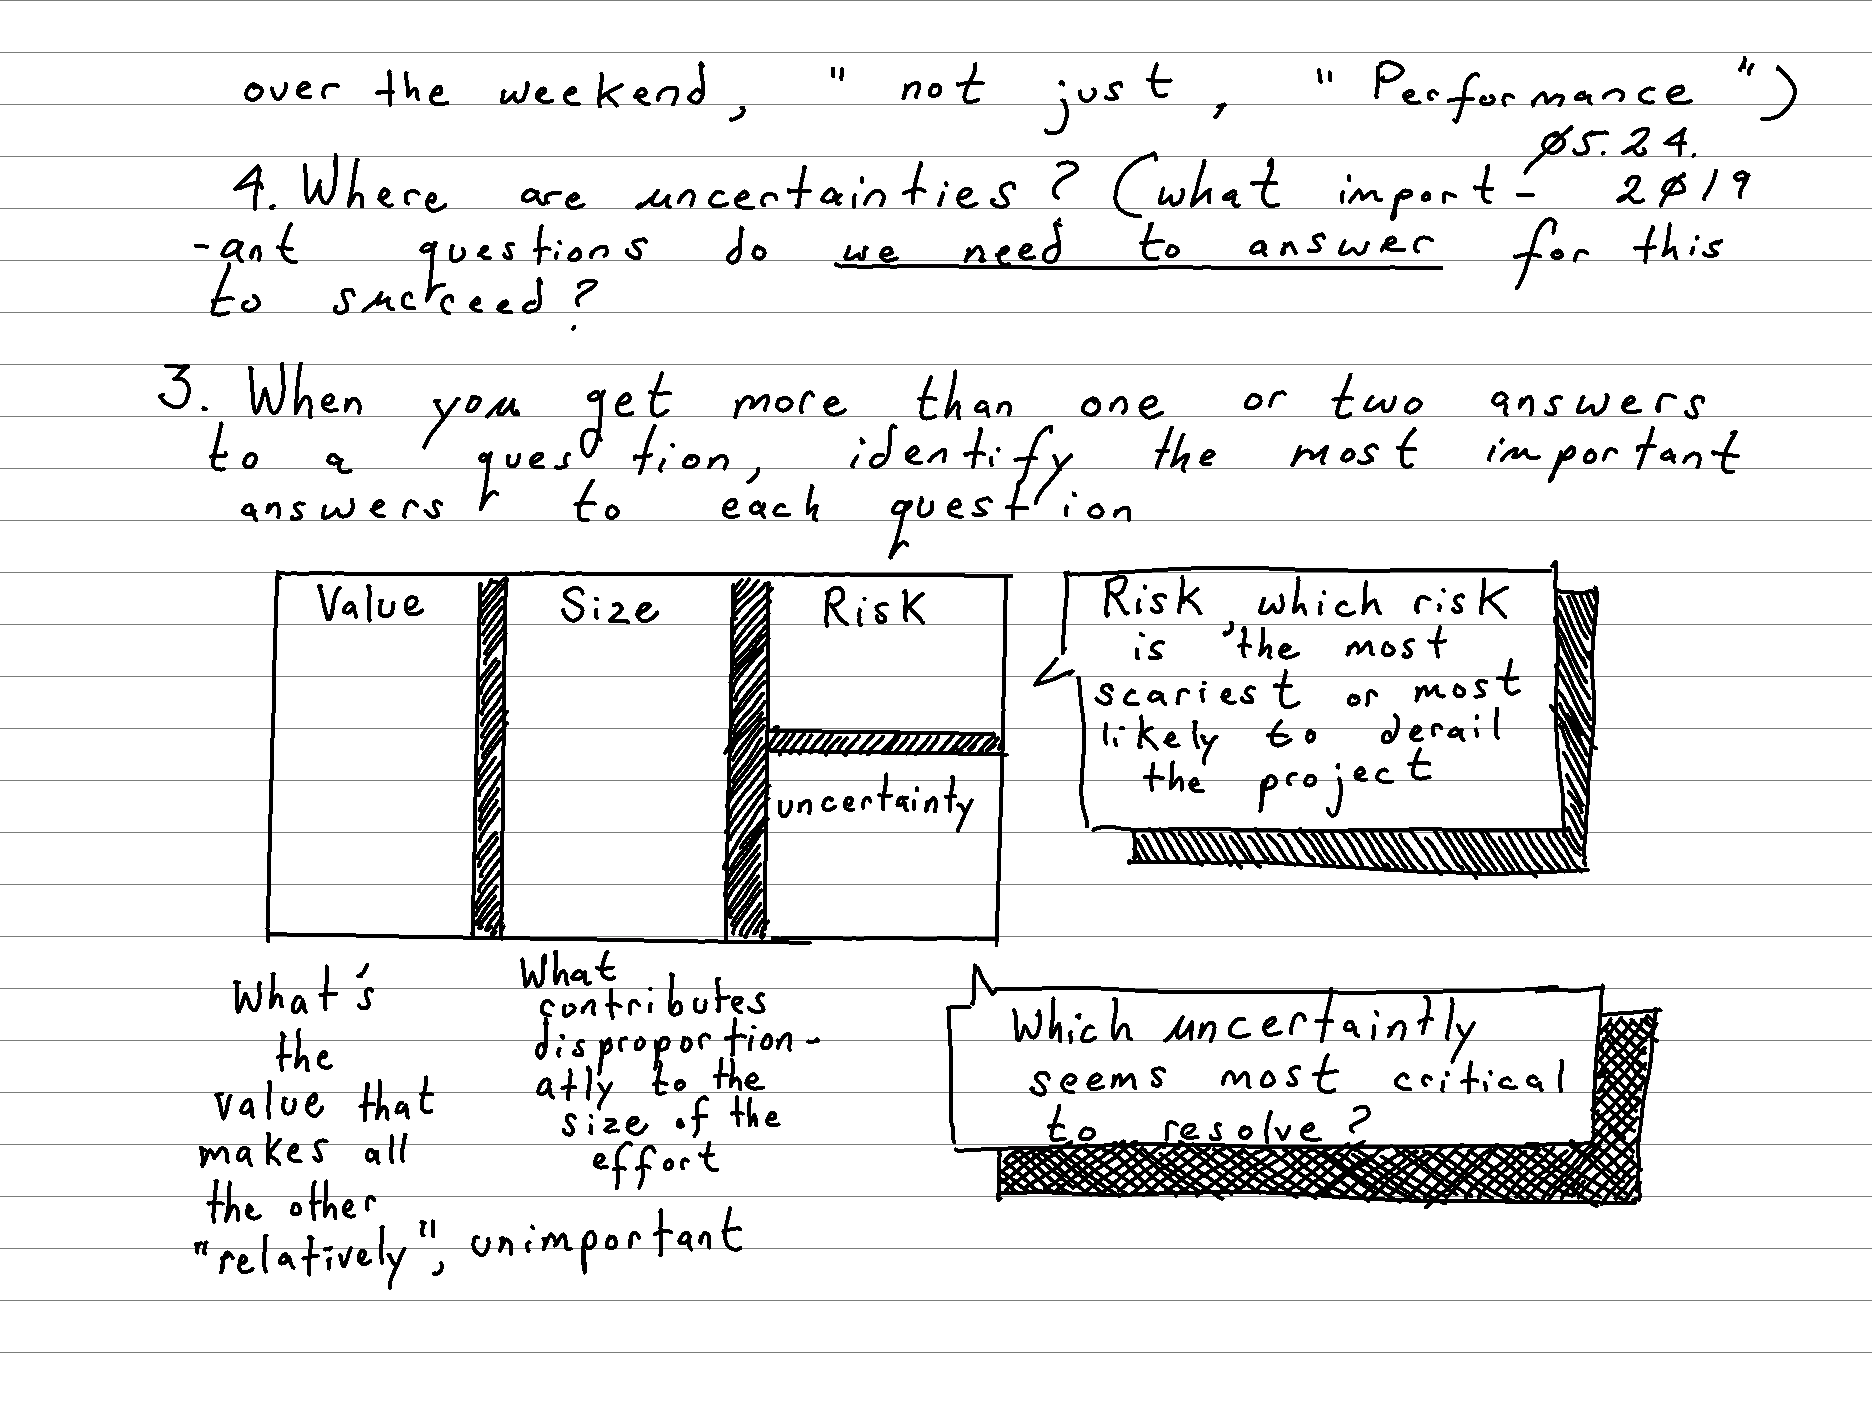 over the weekend, " not just, " Performance ")
ø5.24.
4. Where are uncertainties? (what import- 2ø19
-ant questions do we need to answer for this
to succeed?
3. When you get more than one or two answers
to a question, identify the most important
answers to each question
Value Size Risk
uncertainty
Risk, which risk
is the most
scariest or most
likely to derail
the project
What's
the
value that
makes all
the other
"relatively", unimportant
What
contributes
disproportion-
atly to the
size of the
effort
Which uncertaintly
seems most critical
to resolve?